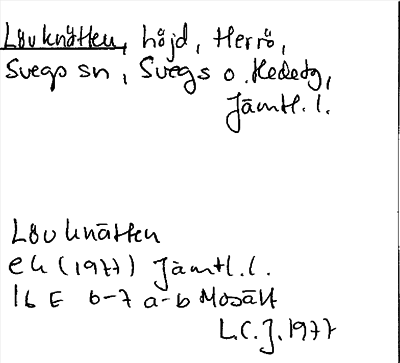 Lövknätten, höjd, Herrö,
Svegs sn, Svegs o. Hedetg,
Jämtl. l.
Lövknätten
ek (1977) Jämtl. l.
16 E 6-7 a-b Mosätt
L.C.J. 1977